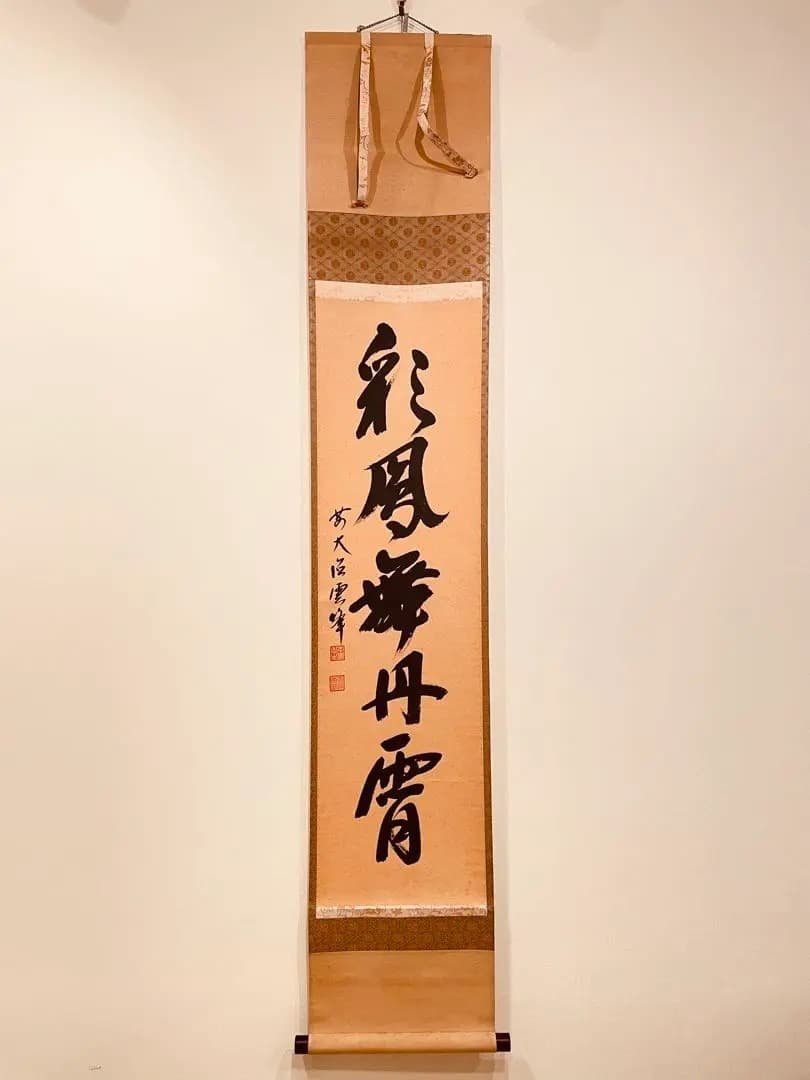 彩鳳舞丹霄
前大徳雲峰